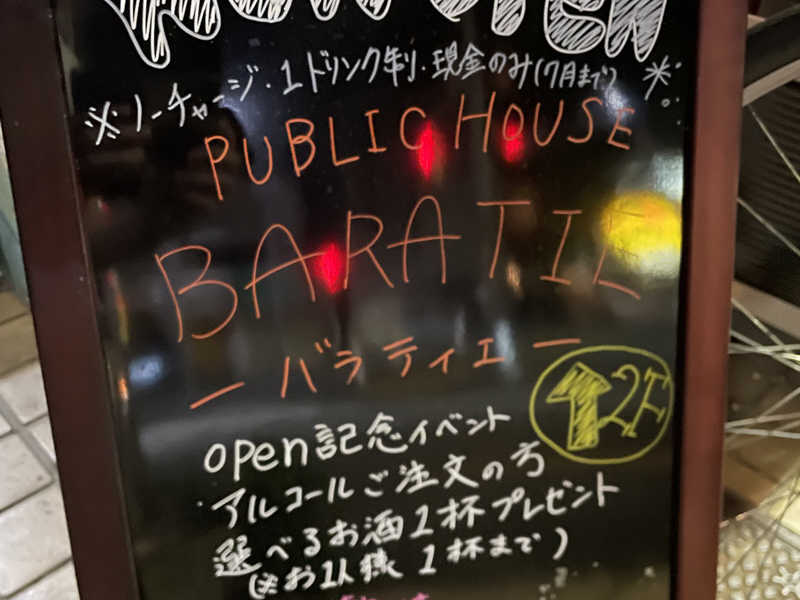 ※ノーチャージ・1ドリンク制・現金のみ(7月まで)※
PUBLIC HOUSE
BARATIE
ーバラティエー
↑2F
open記念イベント
アルコールご注文の方
選べるお酒1杯プレゼント
(※お1人様 1杯まで)